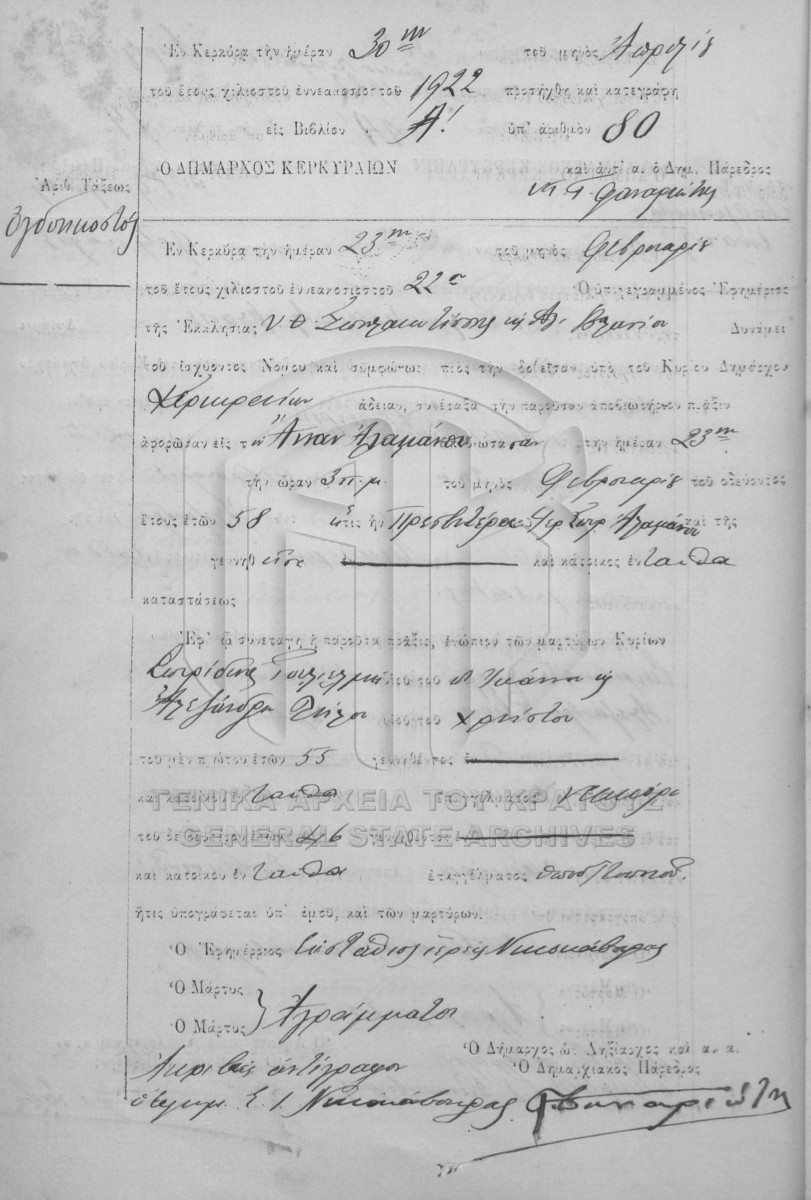 Ἐν Κερκύρᾳ τὴν ἡμέραν 30ην τοῦ μηνὸς Ἀπριλίου
τοῦ ἔτους χιλιοστοῦ ἐννεακοσιοστοῦ 1922 προσήχθη καὶ κατεγράφη
εἰς Βιβλίον Α! ὑπ' ἀριθμὸν 80
Ὁ ΔΗΜΑΡΧΟΣ ΚΕΡΚΥΡΑΙΩΝ καὶ ἀντ' α. ὁ Δημ. Πάρεδρος
Ἀριθ. Τάξεως
Ὀγδοηκοστός
Ἐν Κερκύρᾳ τὴν ἡμέραν 23ην τοῦ μηνὸς Φεβρουαρίου
τοῦ ἔτους χιλιοστοῦ ἐννεακοσιοστοῦ 22ου Ὁ ὑπογεγραμμένος Ἐφημέριος
τῆς Ἐκκλησίας Υ. Θ. Σπηλαιωτίσσης κ Αγ. Βλασίου Δυνάμει
τοῦ ἰσχύοντος Νόμου καὶ συμφώνως πρὸς τὴν δοθεῖσαν ὑπὸ τοῦ Κυρίου Δημάρχου
Κερκυραίων ἄδειαν, συνέταξα τὴν παροῦσαν ἀποβιωτήριον πρᾶξιν
ἀφορῶσαν εἰς τὴν Ἄνναν Ἀλαμάνου ἀποβιώσασαν τὴν ἡμέραν 23ην
τὴν ὥραν 3 π.μ. τοῦ μηνὸς Φεβρουαρίου τοῦ ὁδεύοντος
ἔτους ἐτῶν 58 ἥτις ἦν Πρεσβυτέρα Ἱερ. Σπυρ. Ἀλαμάνου καὶ τῆς
γεννηθεῖσα ἐν καὶ κάτοικος ἐνταῦθα
καταστάσεως
Ἐφ' ᾧ συνετάγη ἡ παροῦσα πρᾶξις, ἐνώπιον τῶν μαρτύρων Κυρίων
Σπυρίδωνος υἱοῦ τοῦ Ἰωάννου κ
Ἀλεξάνδρου υἱοῦ τοῦ Χρήστου
τοῦ μὲν πρώτου ἐτῶν 55 γεννηθέντος ἐν
καὶ κατοίκου ἐνταῦθα ἐπαγγέλματος
ΓΕΝΙΚΑ ΑΡΧΕΙΑ ΤΟΥ ΚΡΑΤΟΥΣ
τοῦ δὲ δευτέρου ἐτῶν 46 γεννηθέντος ἐν
GENERAL STATE ARCHIVES
καὶ κατοίκου ἐνταῦθα ἐπαγγέλματος
ἥτις ὑπογράφεται ὑπ' ἐμοῦ, καὶ τῶν μαρτύρων.
Ὁ Ἐφημέριος Εὐστάθιος ἱερεὺς Νικοκάβουρας
Ὁ Μάρτυς
Ὁ Μάρτυς Ἀγράμματοι
Ὁ Δήμαρχος ὡς Ληξίαρχος καὶ α. α.
Ὁ Δημαρχιακὸς Πάρεδρος
Ἀκριβὲς ἀντίγραφον
ὁ ἐφημ. Ε. Ι. Νικοκάβουρας